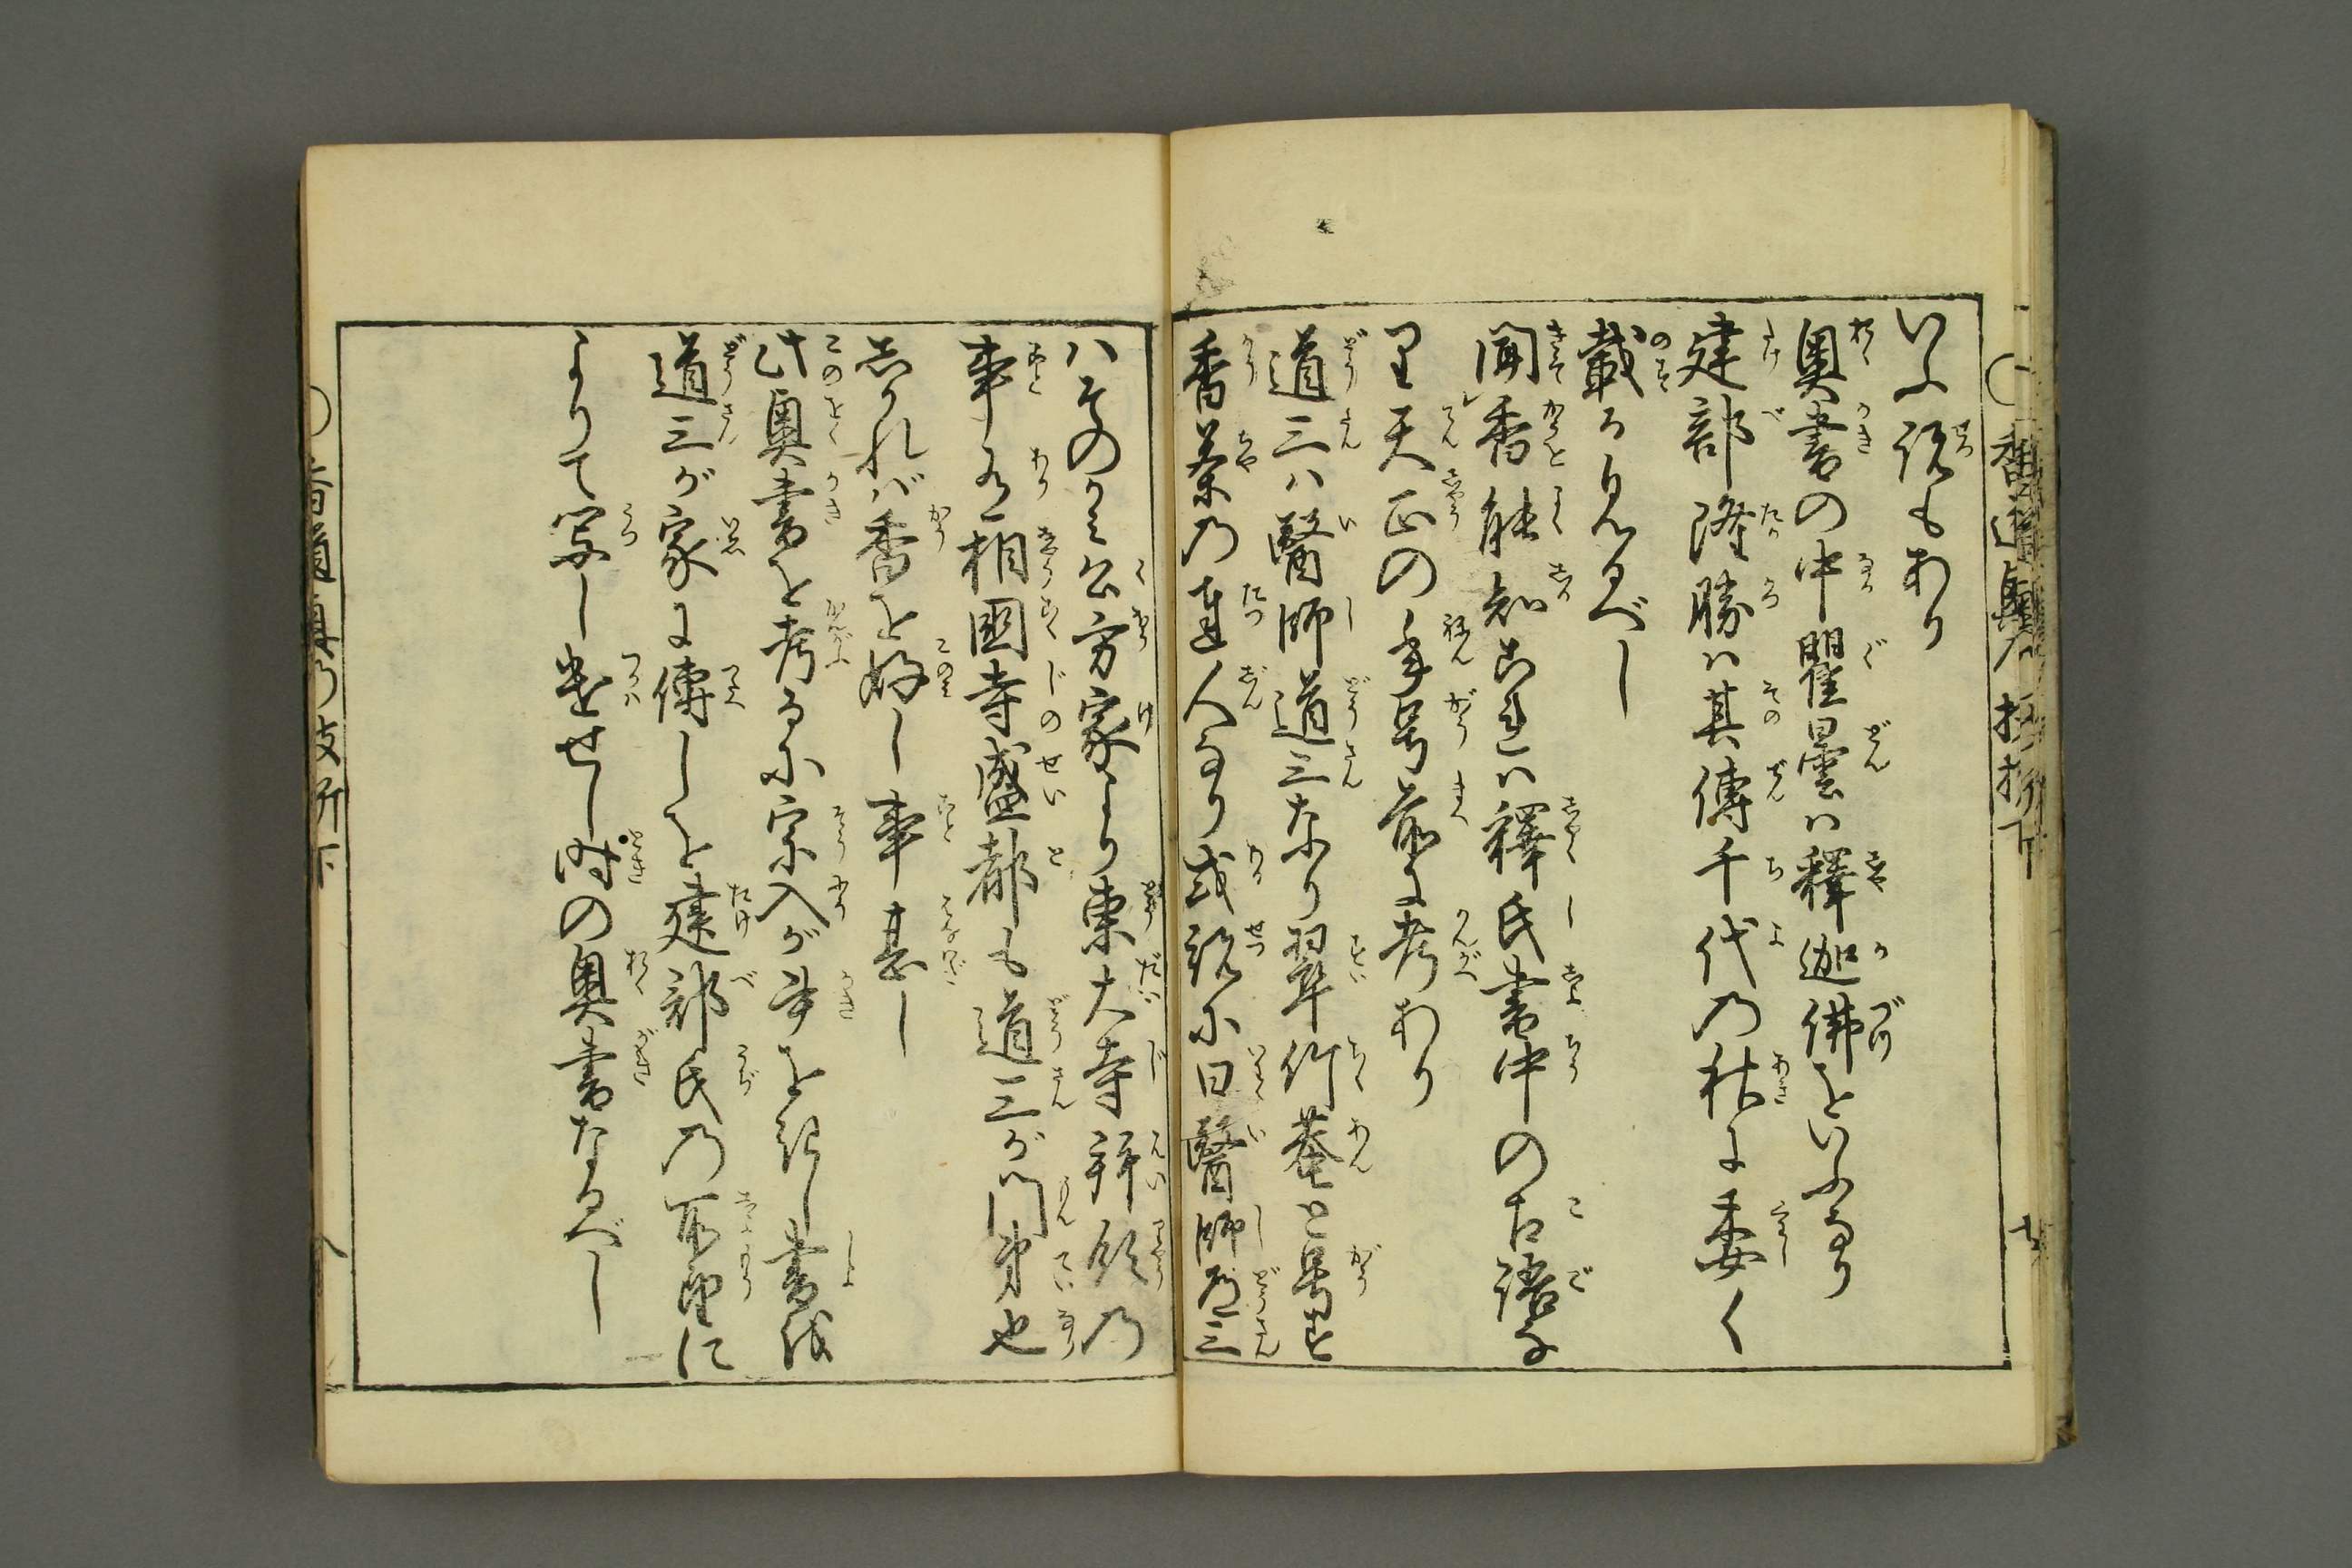 いふ説もあり
奥書の中瞿曇ハ釋迦佛をいふなり
建部隆勝ハ其傳千代乃秋に委く
載る見るべし
聞香能知これハ釋氏書中の古語な
り天正の年号前に考あり
道三ハ醫師道三なり翠竹菴と号す
香茶乃達人なり或説に曰醫師道三
ハそのかミ公方家より東大寺拜領乃
事有相國寺盛都も道三が門弟也
しかれバ香を好し事甚し
此奥書を考るに宗入が書を記し書を
道三が家に傳しを建部氏乃所望に
よりて写し遣せし時の奥書なるべし
香道奥乃枝折下
香道真乃枝折下